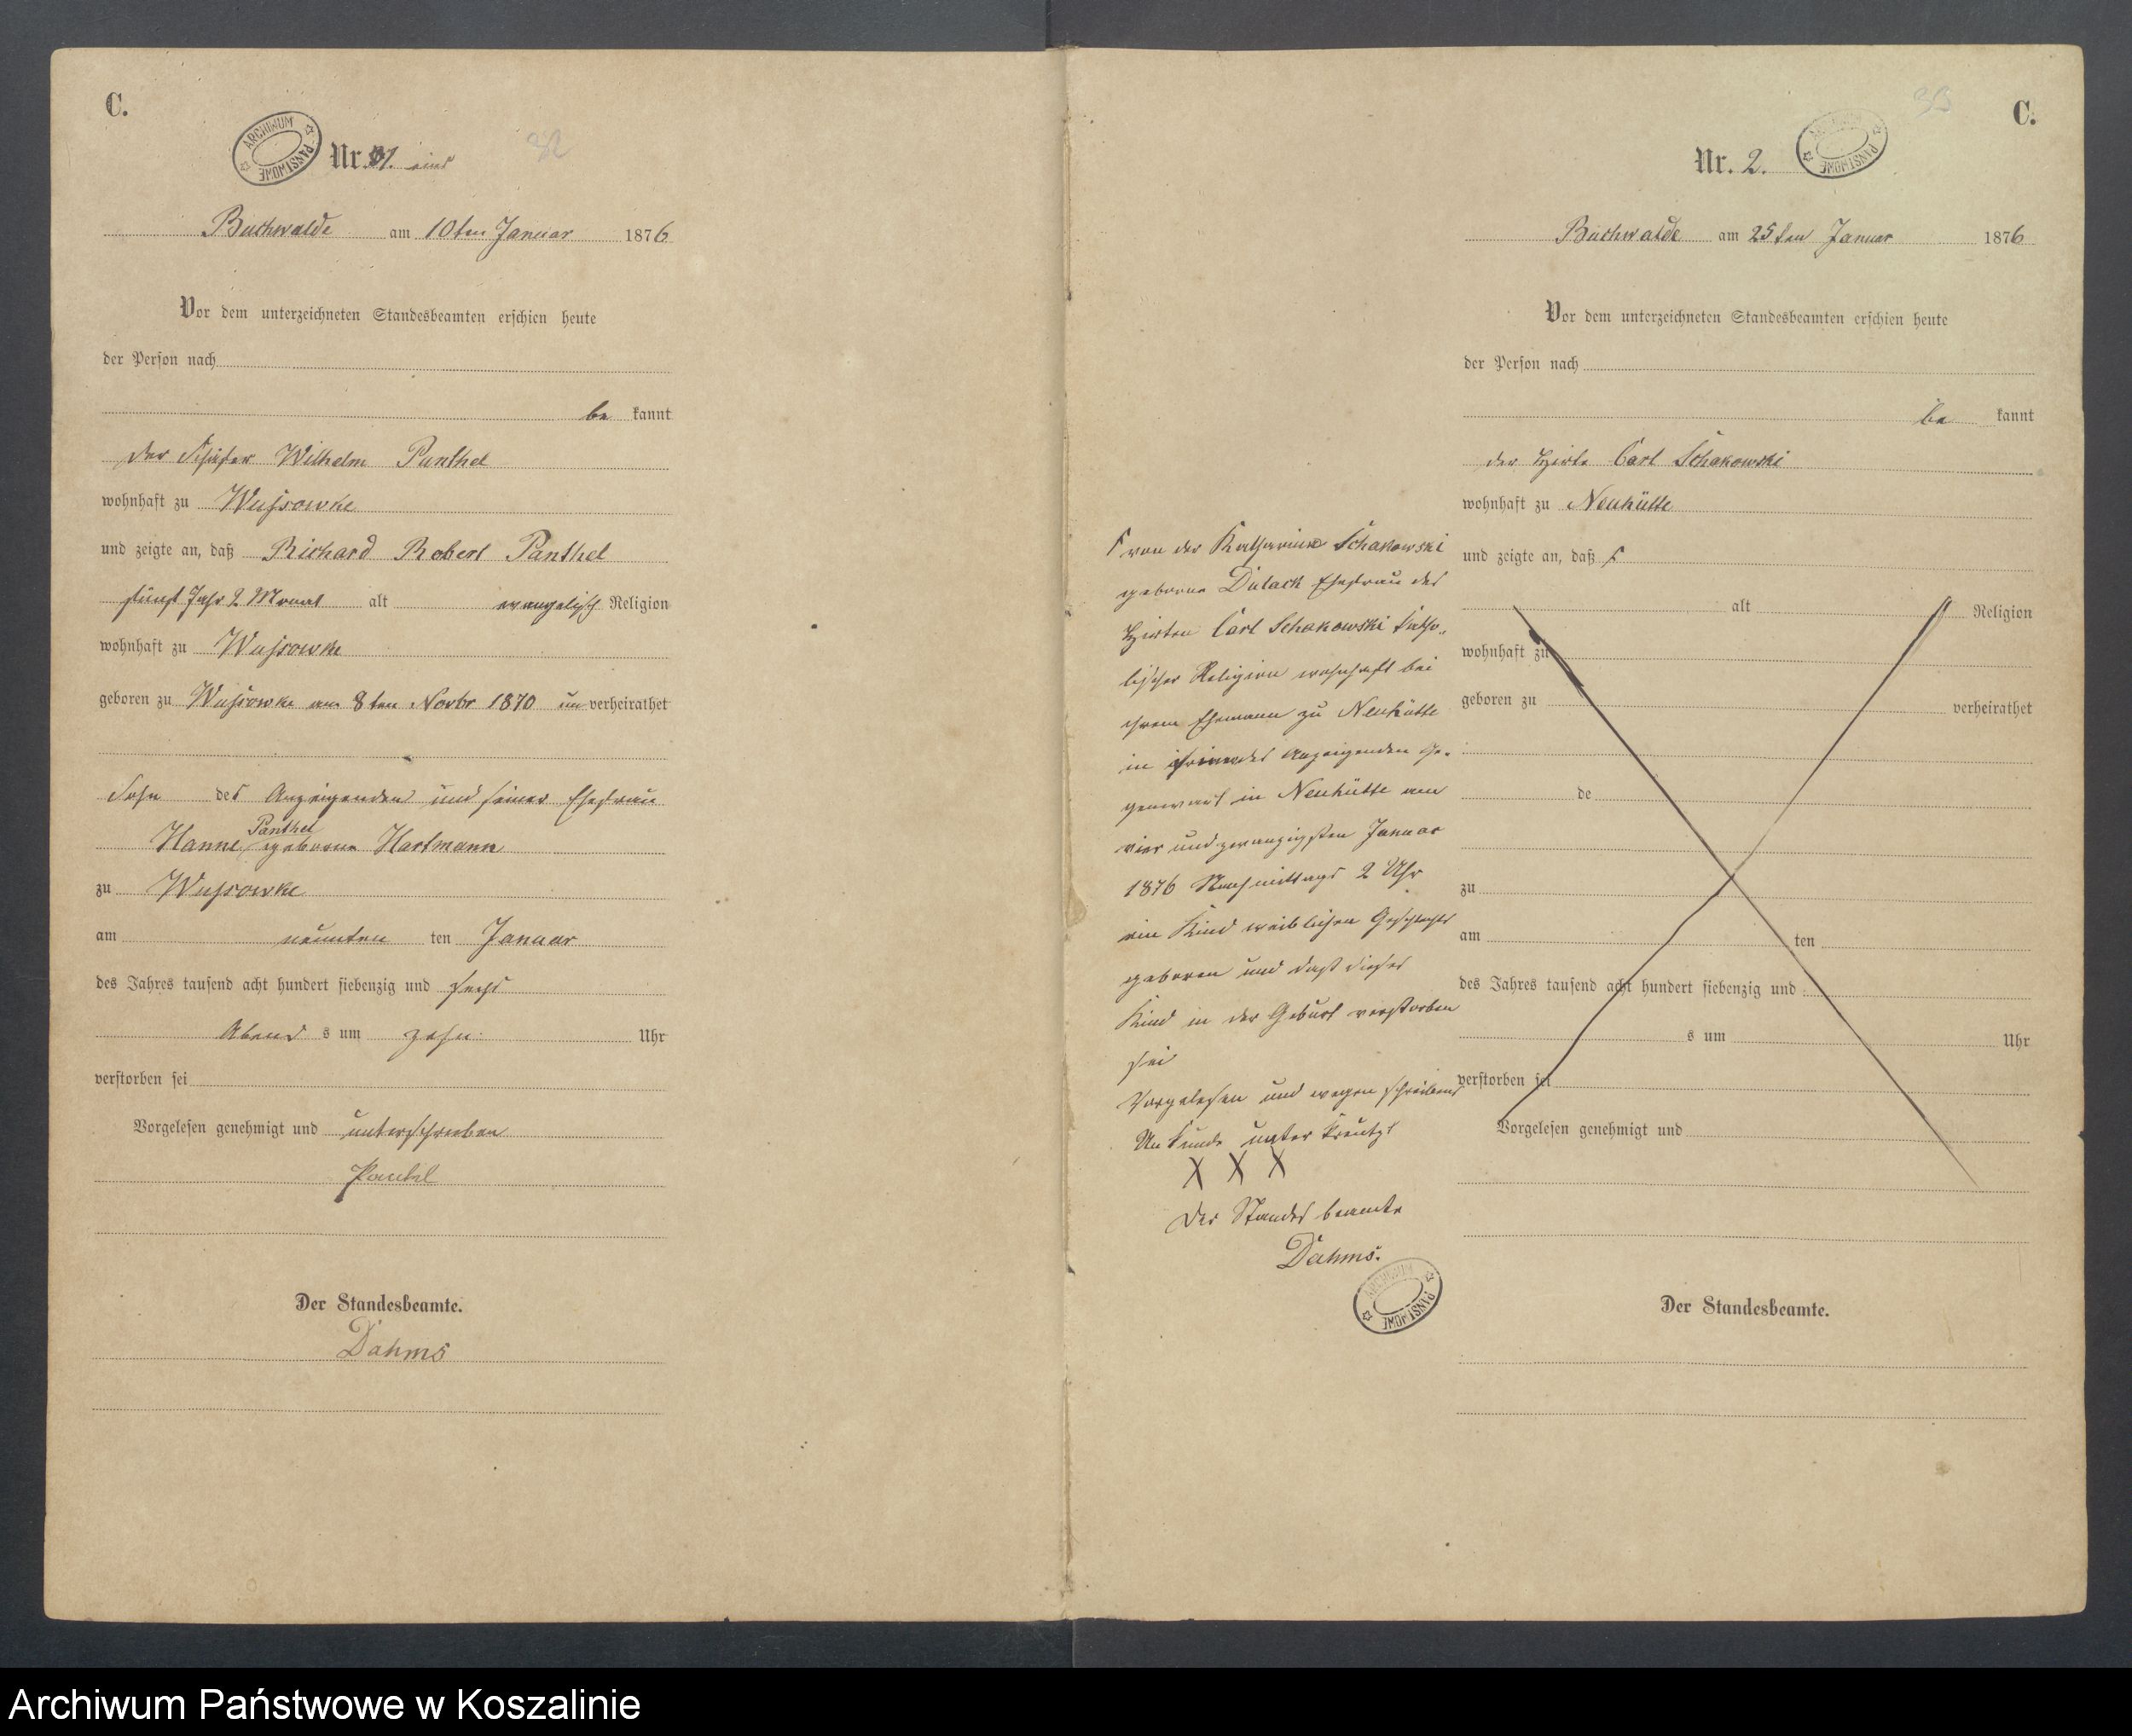 C.
ARCHIWUM PAŃSTWOWE
Nr. 1. eins
32
Buchwalde am 10ten Januar 1876
Vor dem unterzeichneten Standesbeamten erschien heute
der Person nach
be kannt
der Schäfer Wilhelm Panthel
wohnhaft zu Wussowke
und zeigte an, daß Richard Robert Panthel
fünf Jahr 2 Monat alt evangelisch Religion
wohnhaft zu Wussowke
geboren zu Wussowke am 8ten Novbr 1870 un verheirathet
Sohn des Anzeigenden und seiner Ehefrau
Panthel
Hanne geborene Hartmann
zu Wussowke
am neunten ten Januar
des Jahres tausend acht hundert siebenzig und sechs
Abend s um zehn Uhr
verstorben sei
Vorgelesen genehmigt und unterschrieben
Pantel
Der Standesbeamte.
Dahms
33
C.
Nr. 2.
ARCHIWUM PAŃSTWOWE
Buchwalde am 25ten Januar 1876
Vor dem unterzeichneten Standesbeamten erschien heute
der Person nach
be kannt
der Hirte Carl Schakowski
wohnhaft zu Neuhütte
und zeigte an, daß
alt Religion
wohnhaft zu
geboren zu verheirathet
de
zu
am ten
des Jahres tausend acht hundert siebenzig und
s um Uhr
verstorben sei
Vorgelesen genehmigt und
Der Standesbeamte.
von der Katharina Schakowski
geborne Dulack Ehefrau des
Hirten Carl Schakowski katho-
lischer Religion wohnhaft bei
ihrem Ehemann zu Neuhütte
in des Anzeigenden Ge-
genwart in Neuhütte am
vier und zwanzigsten Januar
1876 Nachmittags 2 Uhr
ein Kind weiblichen Geschlechts
geboren und daß dieses
Kind in der Geburt verstorben
sei
Vorgelesen und wegen schreibens
Unkunde unter kreutzt
X X X
Der Standesbeamte
Dahms.
ARCHIWUM PAŃSTWOWE
Archiwum Państwowe w Koszalinie